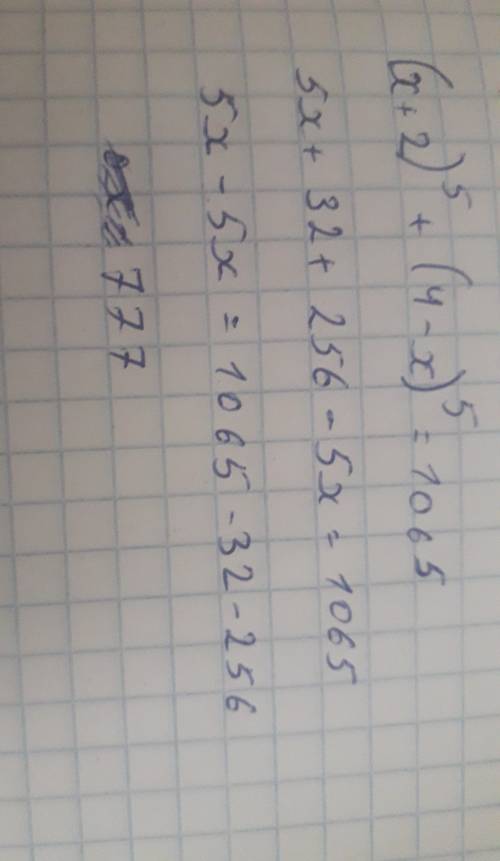 (x+2)⁵ + (4-x)⁵ = 1065
5x + 32 + 256 - 5x = 1065
5x - 5x = 1065 - 32 - 256
777